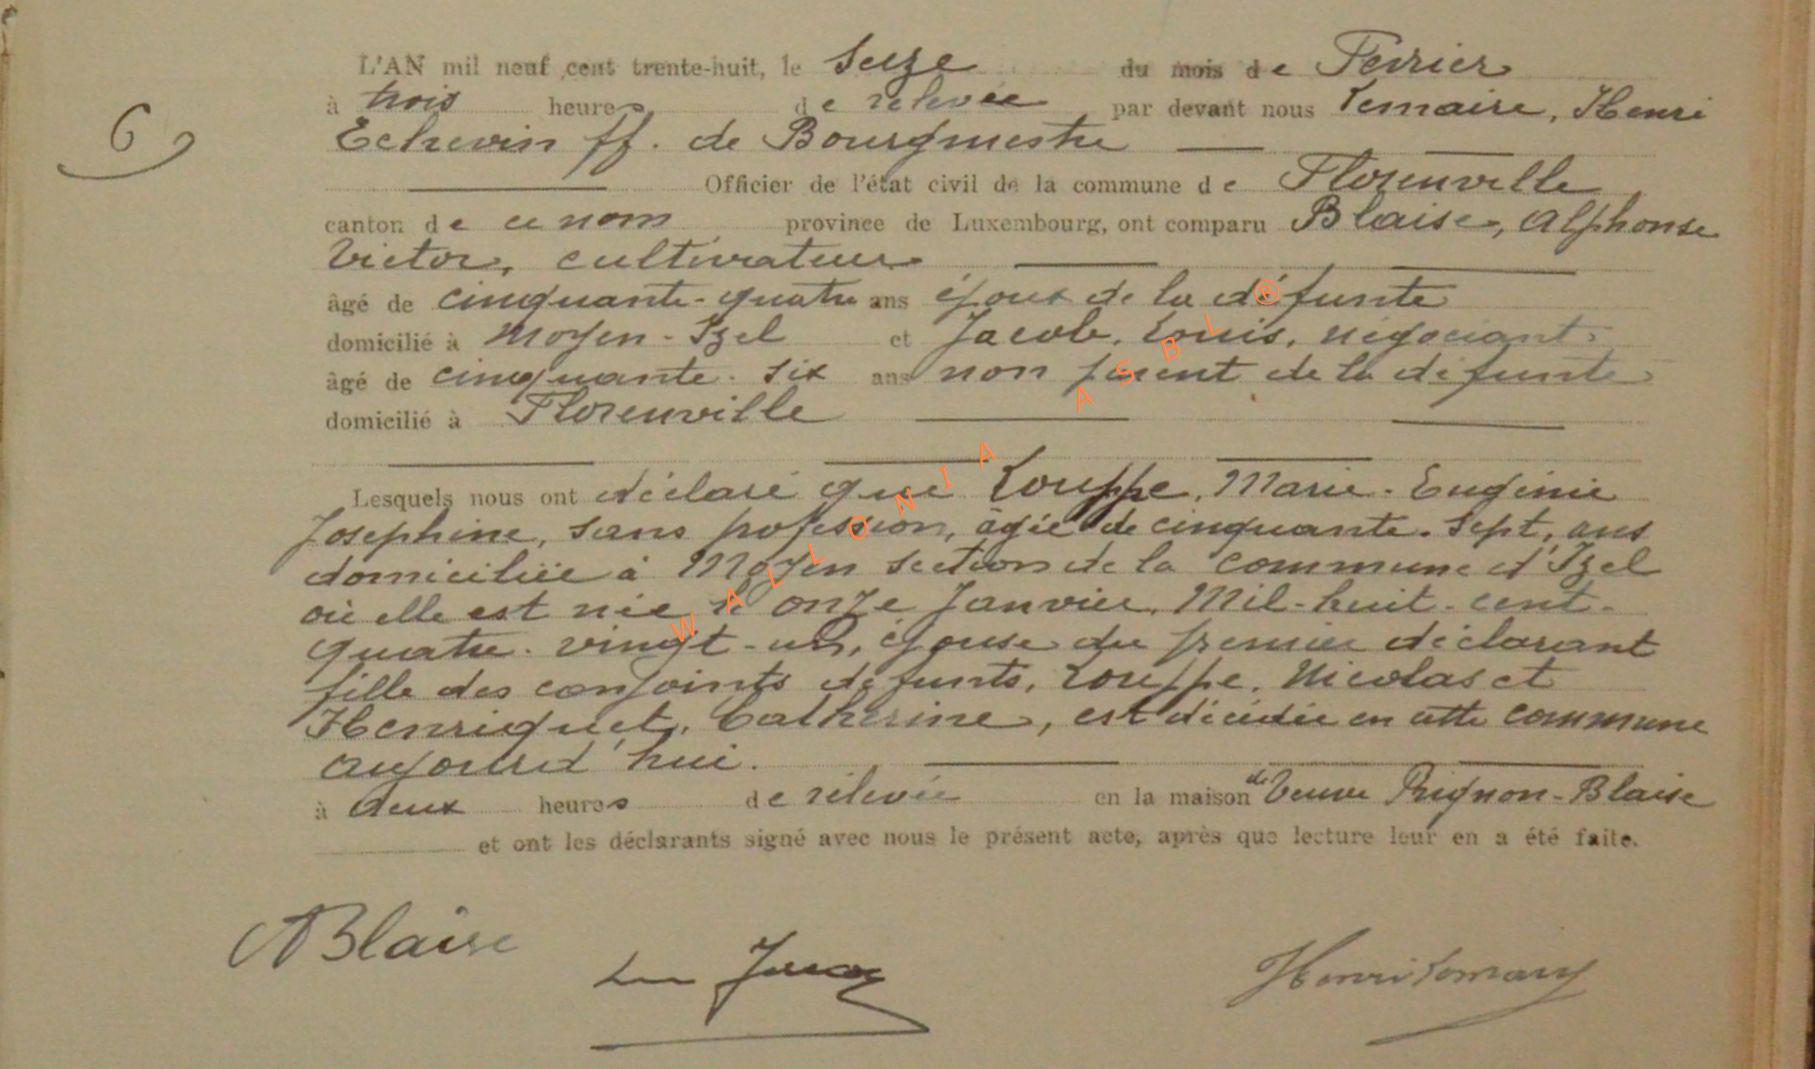 L'AN mil neuf cent trente-huit, le Seize du mois de Février
à trois heures de relevée par devant nous Lemaire, Henri
6
Echevin ff. de Bourgmestre
Officier de l'état civil de la commune de Florenville
canton de ce nom province de Luxembourg, ont comparu Blaise, Alphonse
Victor, cultivateur
âgé de cinquante-quatre ans époux de la défunte
domicilié à Moyen-Izel et Jacob, Louis, négociant
âgé de cinquante-six ans non parent de la défunte
domicilié à Florenville
Lesquels nous ont déclaré que Louppe, Marie-Eugénie
Josephine, sans profession, âgée de cinquante-sept, ans
domiciliée à Moyen section de la commune d'Izel
où elle est née le onze Janvier, Mil-huit-cent-
quatre-vingt-un, épouse du premier déclarant
fille des conjoints défunts, Louppe, Nicolas et
Henriquet, Catherine, est décédée en cette commune
aujourd'hui.
à deux heures de relevée en la maison de Veuve Prignon-Blaise
et ont les déclarants signé avec nous le présent acte, après que lecture leur en a été faite.
ABlaise
Henri Lemaire
WALLONIA ASBL ®